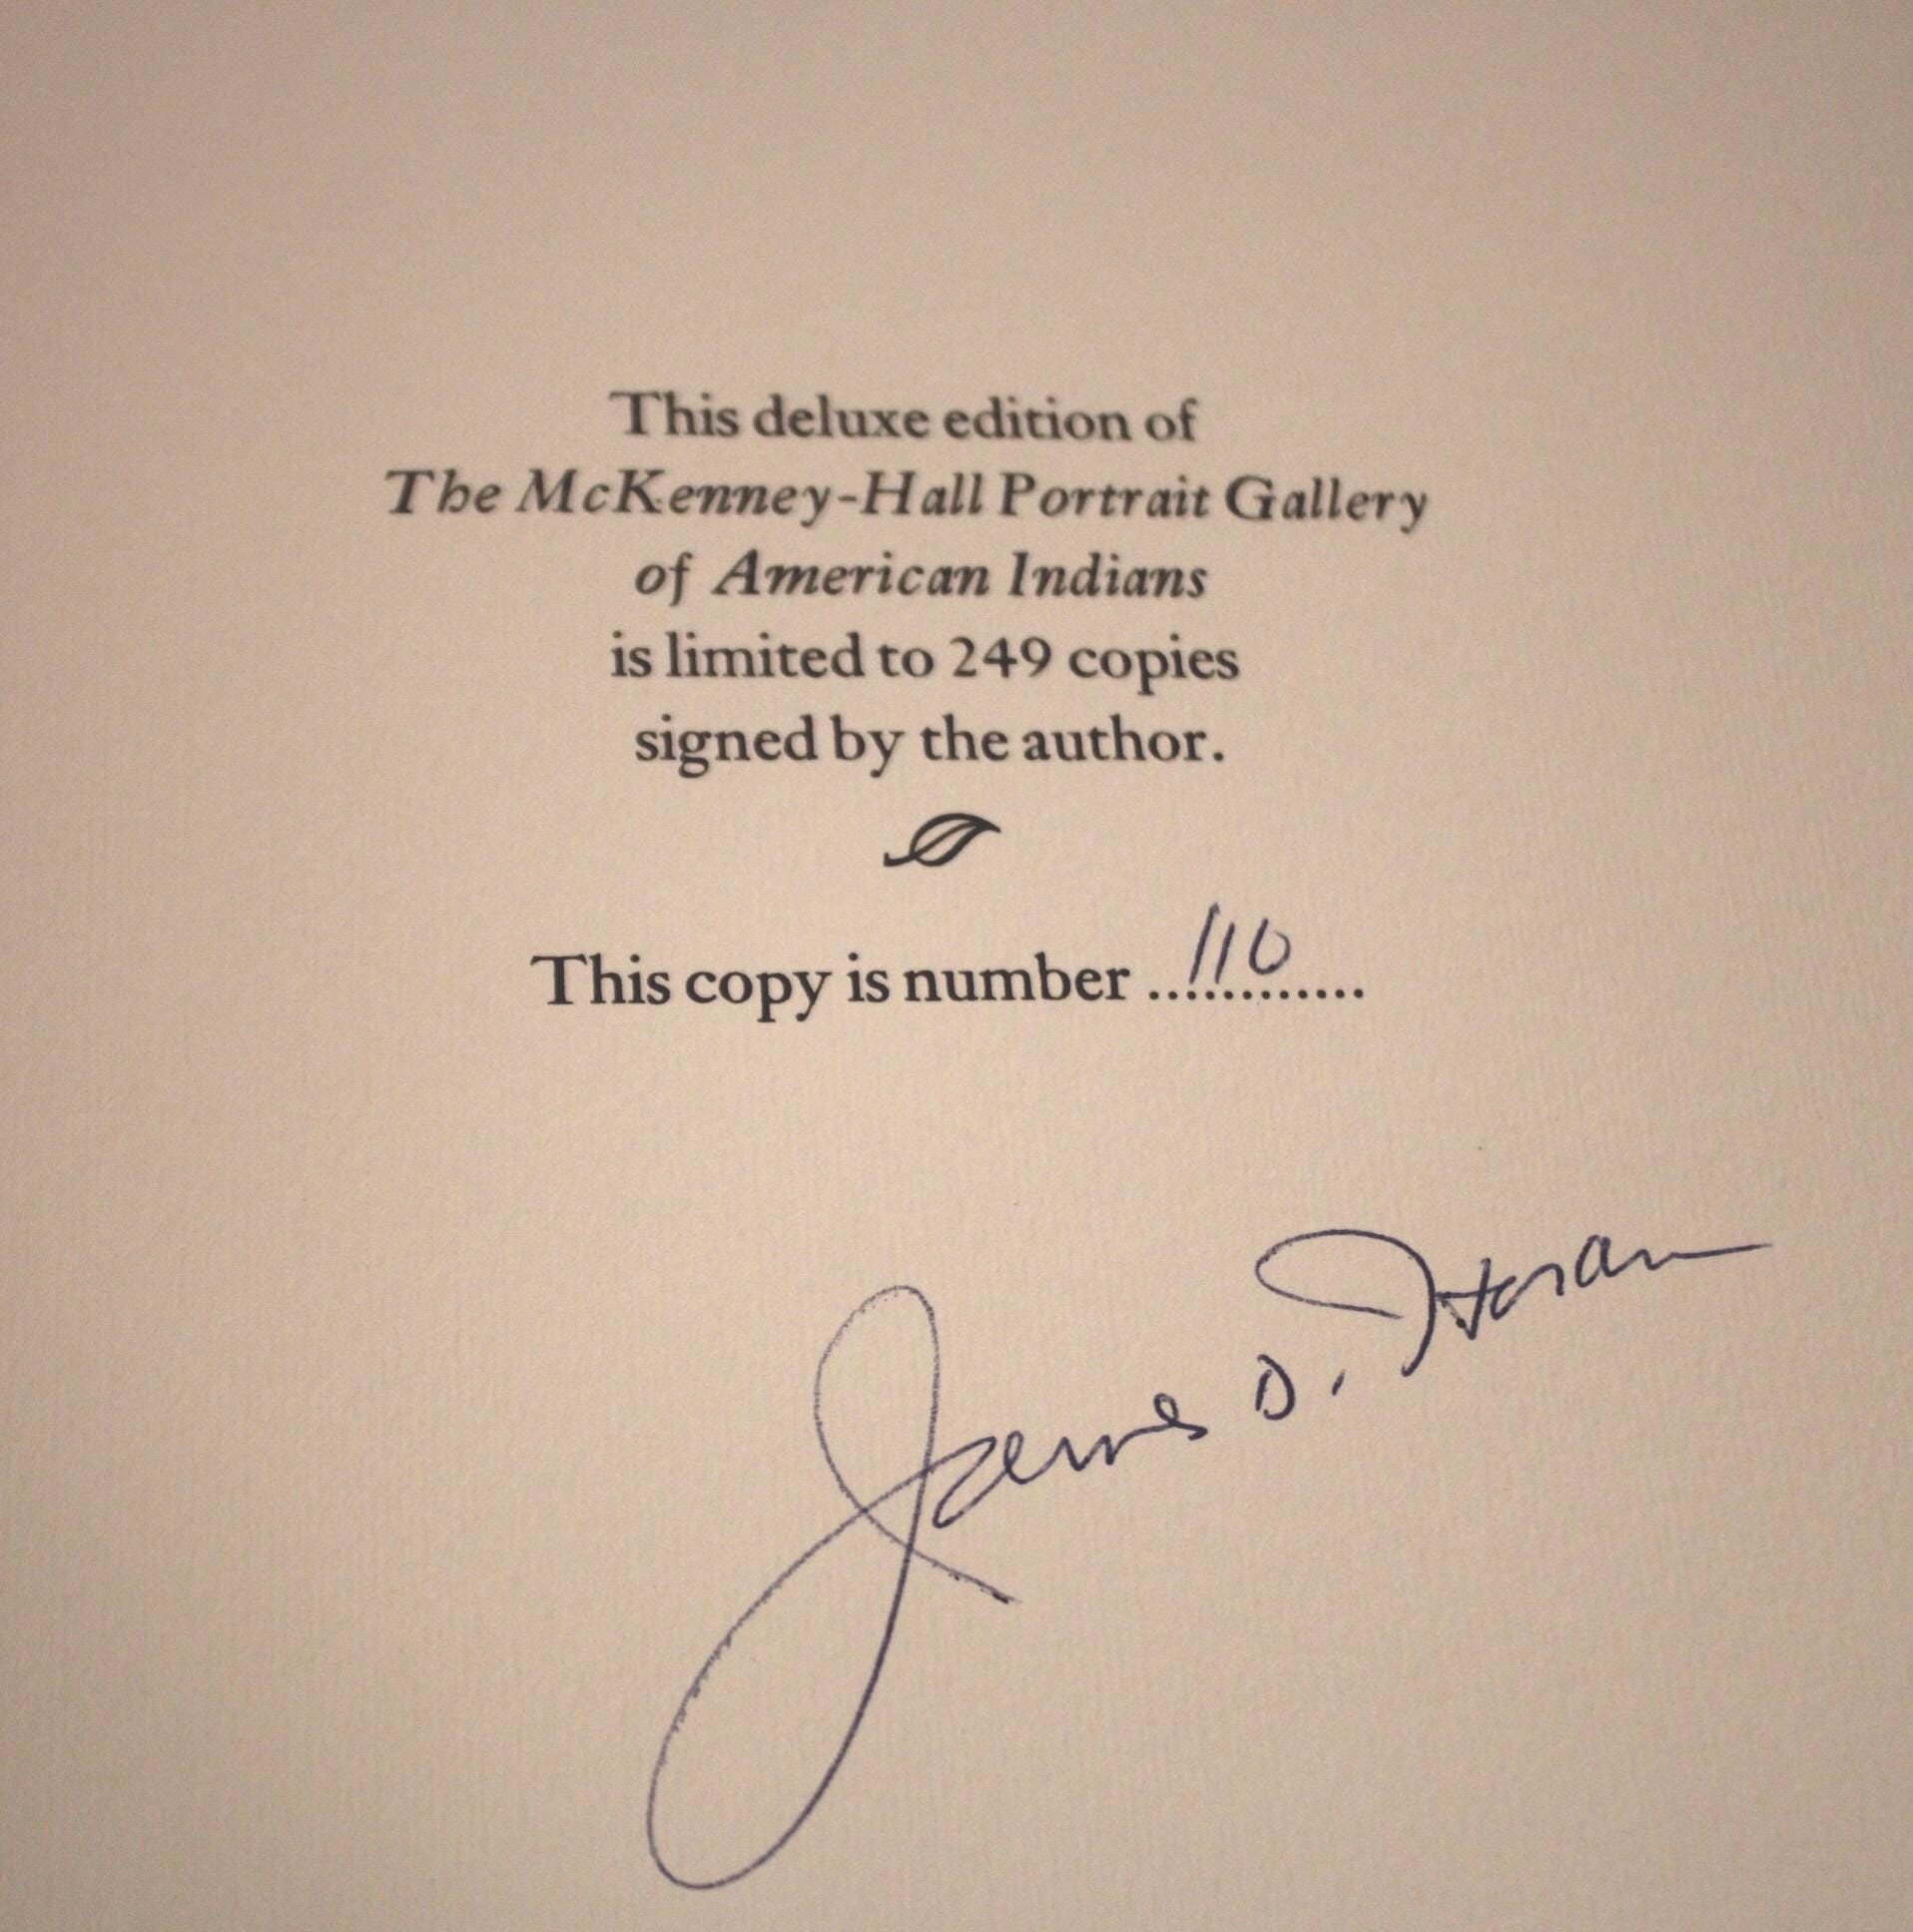 This deluxe edition of
The McKenney-Hall Portrait Gallery
of American Indians
is limited to 249 copies
signed by the author.
This copy is number ..110............
James D. Horan